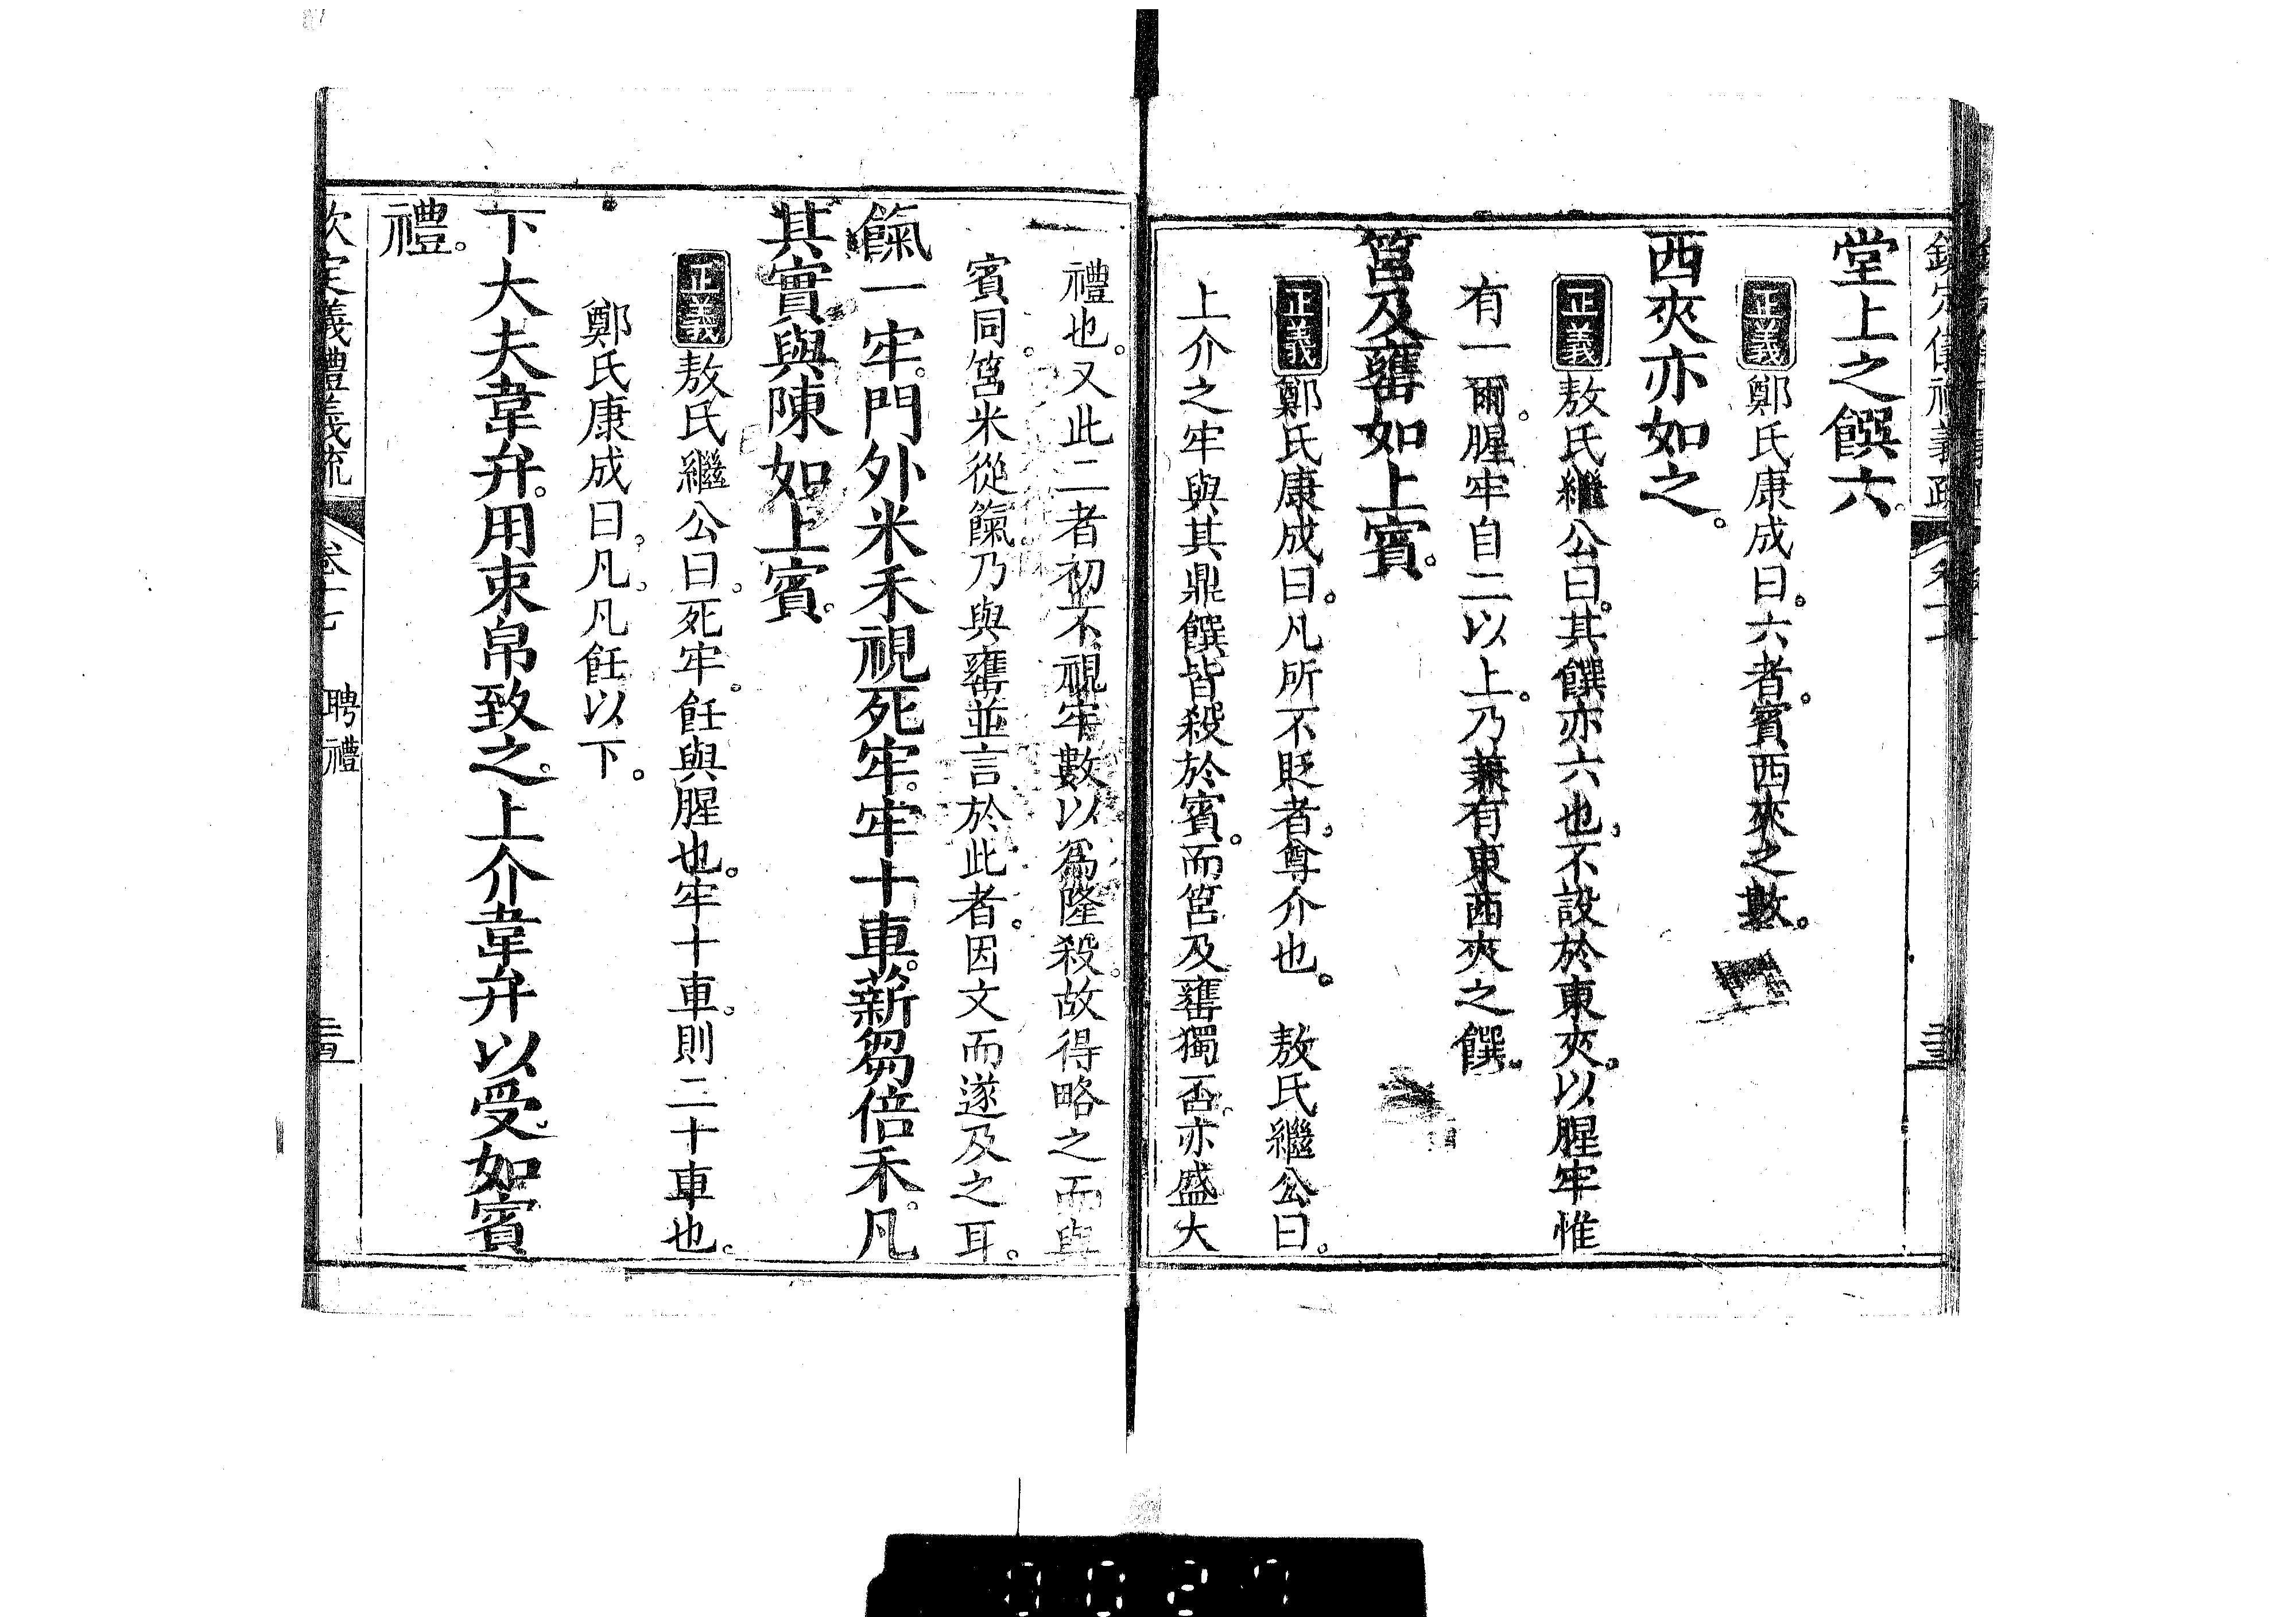 堂上之饌六。
正義鄭氏康成曰。六者。賓西夾之數。
西夾亦如之。
正義敖氏繼公曰。其饌亦六也。不設於東夾。以腥牢惟
有一爾。腥牢自二以上。乃兼有東西夾之饌。
筥及罋如上賓。
正義鄭氏康成曰。凡所不貶者。尊介也。 敖氏繼公曰。
上介之牢與其鼎饌皆殺於賓。而筥及罋獨否。亦盛大
禮也。又此二者初不視牢數以為隆殺。故得略之而與
賓同。筥米從餼。乃與罋並言於此者。因文而遂及之耳。
餼一牢。門外米禾視死牢。牢十車。薪芻倍禾。凡
其實與陳如上賓。
正義敖氏繼公曰。死牢。飪與腥也。牢十車。則二十車也。
鄭氏康成曰。凡。凡飪以下。
下大夫韋弁。用束帛致之。上介韋弁以受。如賓
禮。
欽定義禮義疏 卷十七 聘禮